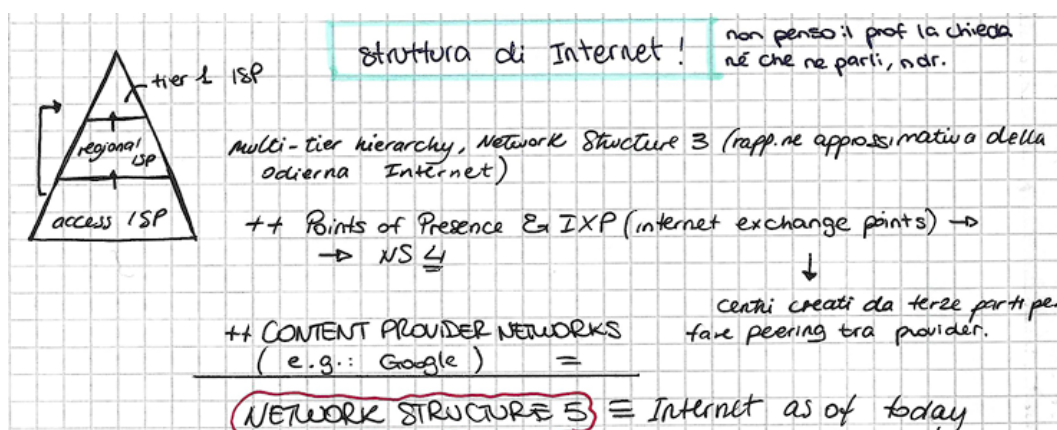 struttura di Internet!
non penso il prof la chieda
né che ne parli, ndr.
tier 1 ISP
regional ISP
access ISP
multi-tier hierarchy, Network Structure 3 (rapp.ne approssimativa della
odierna Internet)
++ Points of Presence & IXP (internet exchange points) →
→ NS 4
centri creati da terze parti per
fare peering tra provider.
++ CONTENT PROVIDER NETWORKS
(e.g.: Google) =
NETWORK STRUCTURE 5 ≡ Internet as of today